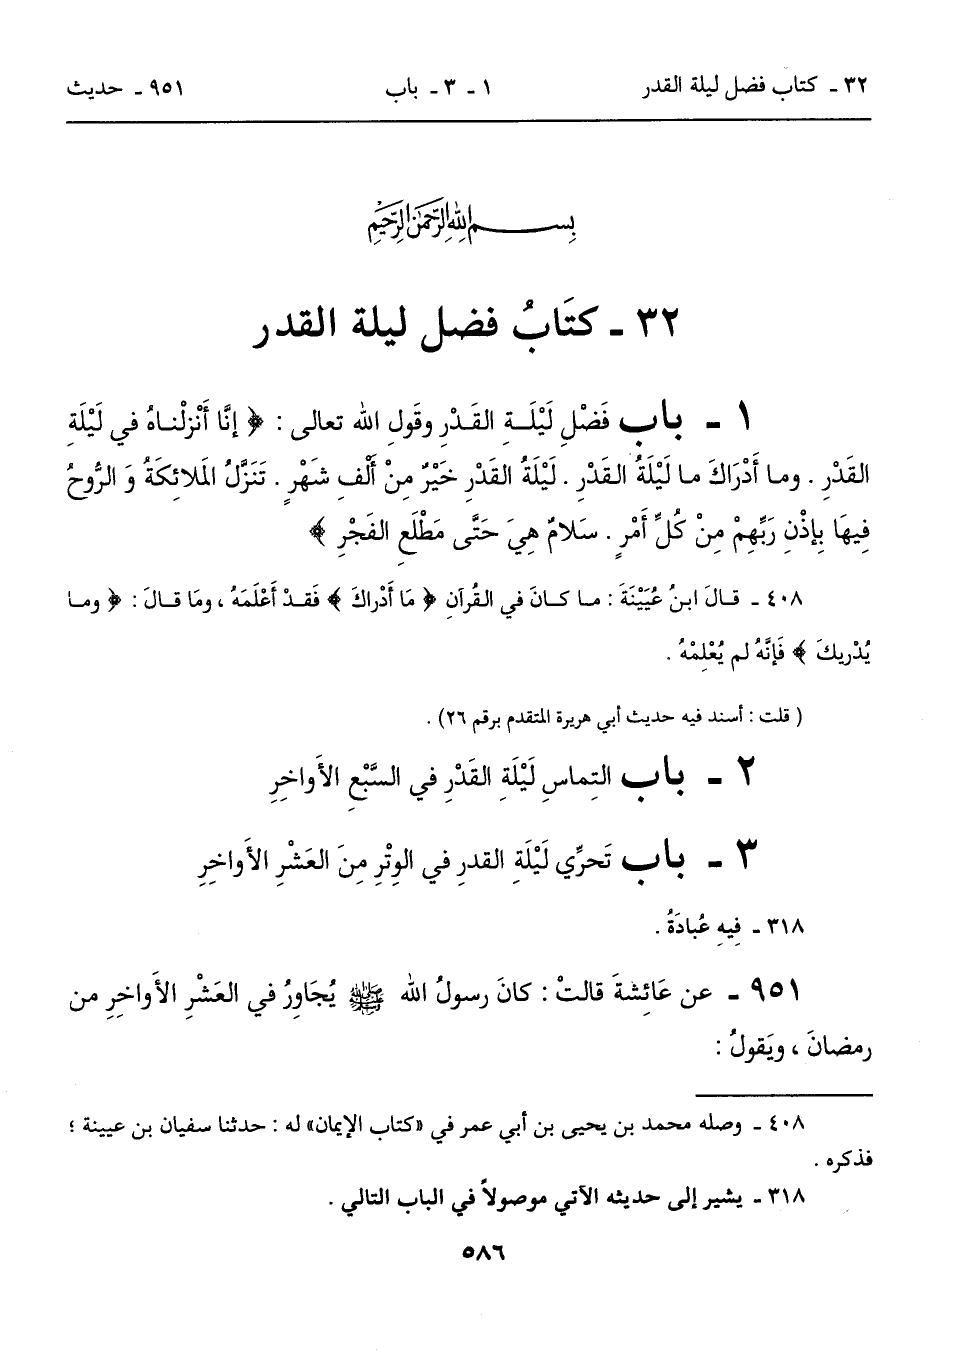 ٣٢ ـ كتاب فضل ليلة القدر ١ ـ ٣ ـ باب ٩٥١ ـ حديث
بسم الله الرحمن الرحيم
٣٢ ـ كتَابُ فضل ليلة القدر
١ ـ باب فَضْلِ لَيْلَـةِ القَـدْرِ وقَولِ الله تعالى : ﴿ إنَّا أَنْزلْنـاهُ في لَيْلَةِ
القَدْرِ . ومـا أَدْرَاكَ مـا لَيْلَةُ القَدْرِ . لَيْلَةُ القَدْرِ خَيْرٌ مِنْ أَلْفِ شَهْرٍ . تَنَزَّلُ المَلائِكَةُ وَ الرُّوحُ
فِيهَا بِإِذْنِ رَبِّهِمْ مِنْ كُلِّ أَمْرٍ . سَلامٌ هِيَ حَتَّى مَطْلَعِ الفَجْرِ ﴾
٤٠٨ ـ قـالَ ابنُ عُيَيْنَةَ : مـا كـانَ في القُرآنِ ﴿ مَا أَدْراكَ ﴾ فَقـدْ أَعْلَمَهُ ، ومَا قـالَ : ﴿ ومـا
يُدْرِيكَ ﴾ فَإِنَّهُ لم يُعْلِمْهُ .
( قلت : أسند فيه حديث أبي هريرة المتقدم برقم ٢٦) .
٢ ـ باب التِماسِ لَيْلَةِ القَدْرِ في السَّبْعِ الأَواخِرِ
٣ ـ باب تَحرِّي لَيْلَةِ القدرِ في الوِتْرِ مِنَ العَشْرِ الأَواخِرِ
٣١٨ ـ فِيهِ عُبادَةُ .
٩٥١ ـ عن عَائِشةَ قالتْ : كانَ رسولُ الله ﷺ يُجَاوِرُ في العَشْرِ الأَواخِرِ من
رمضانَ ، ويَقولُ :
٤٠٨ ـ وصله محمد بن يحيى بن أبي عمر في «كتاب الإيمان» له : حدثنا سفيان بن عيينة ؛
فذكره .
٣١٨ ـ يشير إلى حديثه الآتي موصولاً في الباب التالي .
٥٨٦